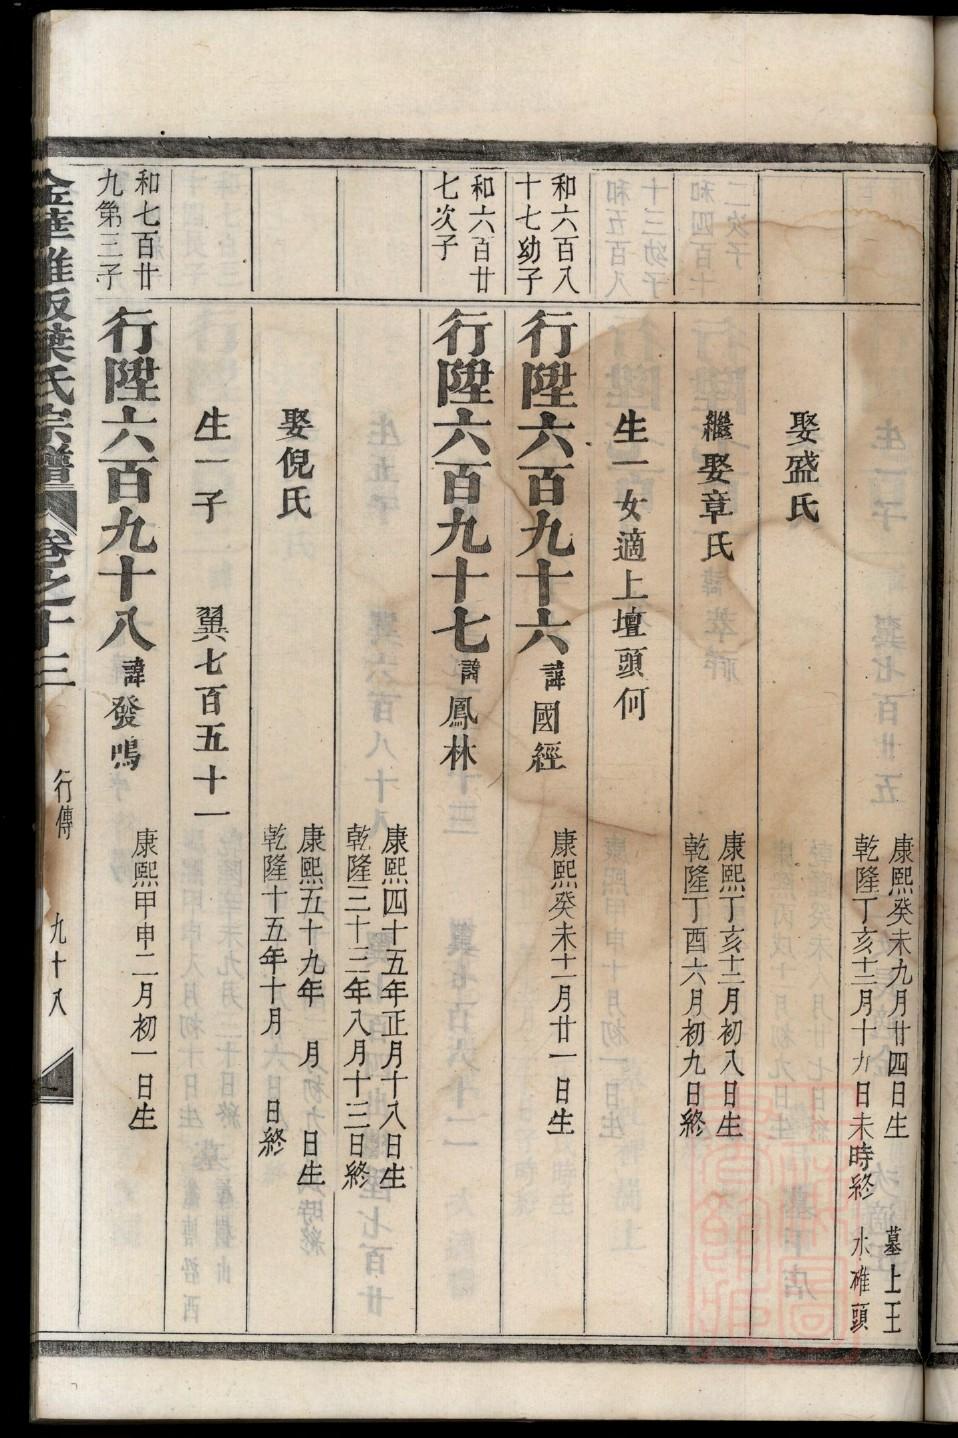 康熙癸未九月廿四日生
乾隆丁亥十二月十九日未時終
墓上王
水碓頭
娶盛氏
康熙丁亥十二月初八日生
乾隆丁酉六月初九日終
繼娶章氏
生一女適上壇頭何
和六百八
十七幼子
行陞六百九十六
諱國經
康熙癸未十一月廿一日生
和六百廿
七次子
行陞六百九十七
諱鳳林
康熙四十五年正月十八日生
乾隆三十三年八月十三日終
娶倪氏
康熙五十九年 月 日生
乾隆十五年十月 日終
生一子 翼七百五十一
和七百廿
九第三子
行陞六百九十八
諱發鳴
康熙甲申二月初一日生
葉氏宗譜 卷之十三 行傳 九十八